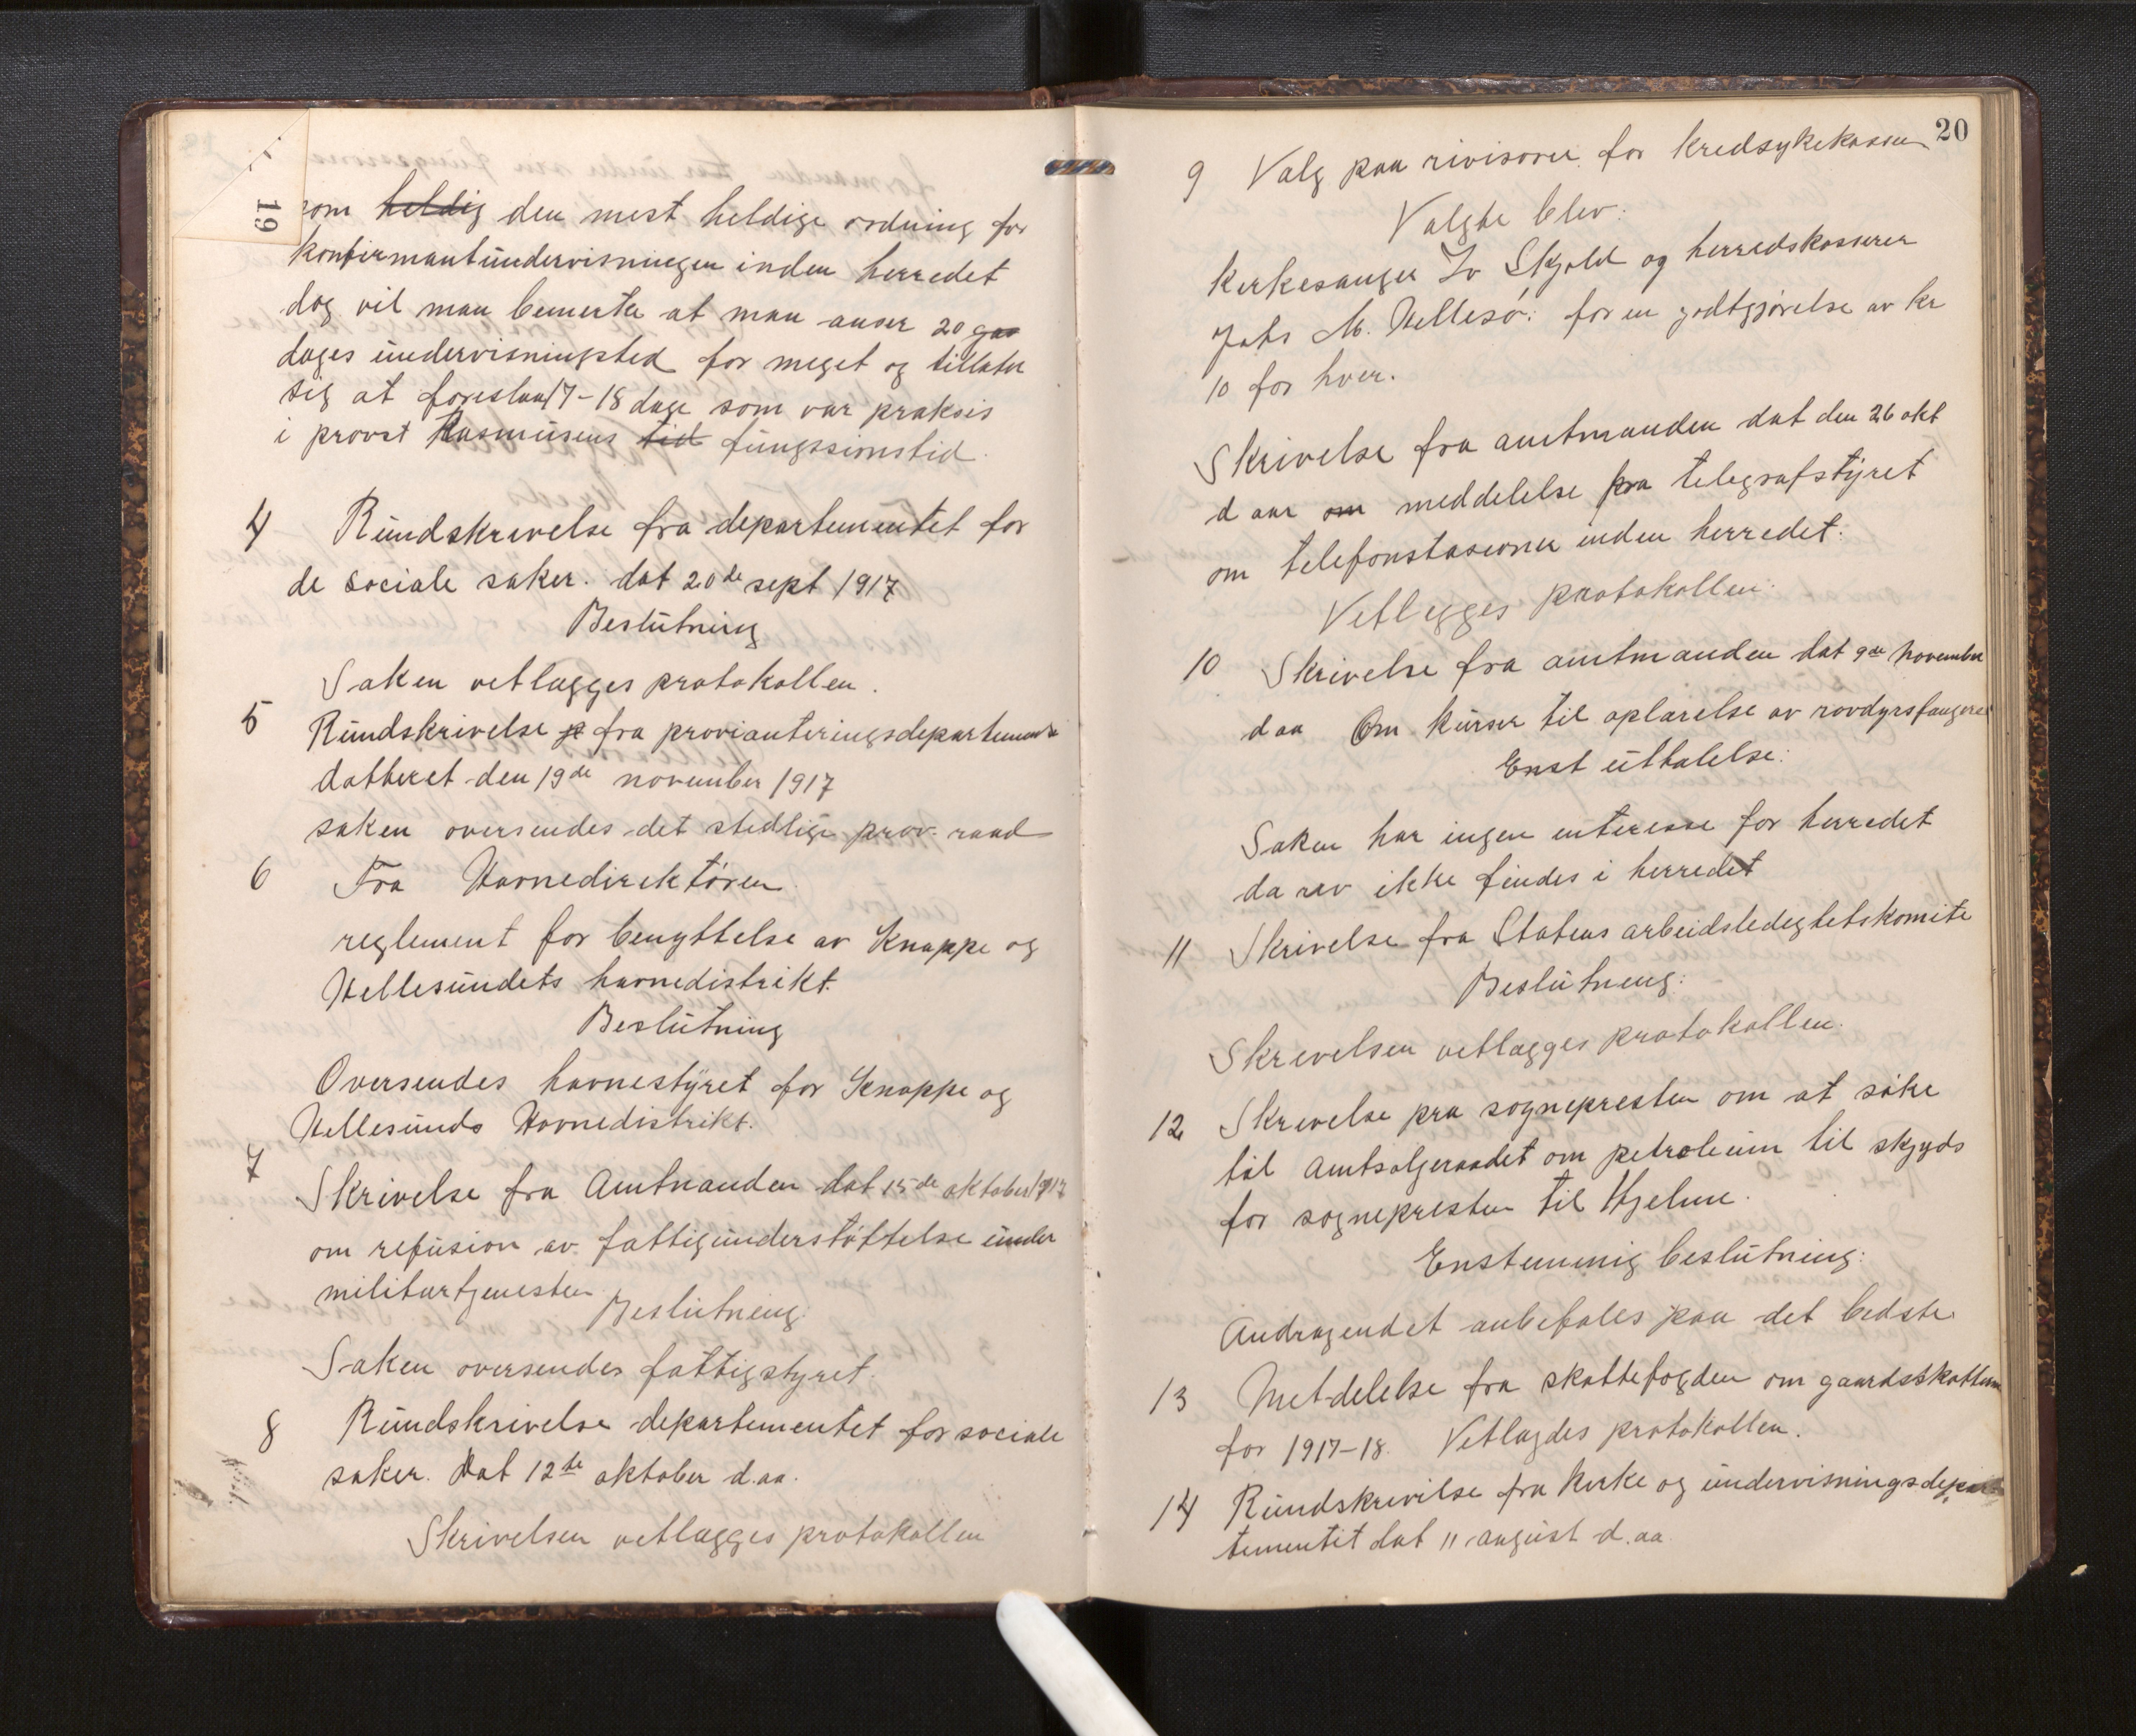 19
som heldig den mest heldige ordning for
konfirmantundervisningen inden herredet
dog vil man bemerke at man anser 20
dages undervisningsted for meget og tillater
sig at foreslaa 17-18 dage som var praksis
i provst Rasmusens tid fungssionstid.
4 Rundskrivelse fra departementet for
de sociale saker. dat 20de sept 1917
Beslutning
Saken vetlægges protokollen.
5 Rundskrivelse fra provianteringsdepartement
datteret den 19de november 1917
saken oversendes det stedlige prov. raad
6 Fra Havnedirektøren.
reglement for benyttelse av Knappe og
Hellesundets havnedistrikt.
Beslutning
Oversendes havnestyret for Knappe og
Hellesunds Havnedistrikt.
7
Skrivelse fra Amtmanden dat 15de oktober 1917
om refusion av fattigunderstøttelse under
militærtjenesten
Beslutning:
Saken oversendes fattigstyret.
8 Rundskrivelse departementet for sociale
saker. Dat 12te oktober d.aa.
Skrivelsen vetlægges protokollen
20
9 Valg paa rivisorer for kredsykekassen
Valgte blev:
Kirkesanger Skjold og herredskasserer
Johs M. Hellesø: for en godtgjørelse av kr
10 for hver.
Skrivelse fra amtmanden dat den 26 okt
d aar om meddelelse fra telegrafstyret
om telefonstasioner inden herredet.
Vetlegges protokollen.
10 Skrivelse fra amtmanden dat 9de november
d aa Om kurser til oplærelse av rovdyrsfangere
Enst uttalelse:
Saken har ingen interesse for herredet
da rev ikke findes i herredet
11 Skrivelse fra Statens arbeidsledighetskomite
Beslutning:
Skrivelsen vetlægges protokollen.
12 Skrivelse fra sognepresten om at søke
til Amtsoljeraadet om petroleum til skjyds
for sognepresten til Hjelme.
Enstemmig beslutning:
Andragendet anbefales paa det bedste
13 Met-delelse fra skattefogden om gaardsskatten
for 1917-18. Vetlagdes protokollen.
14 Rundskrivelse fra kirke og undervisningsdepar
tementet dat 11 august d.aa